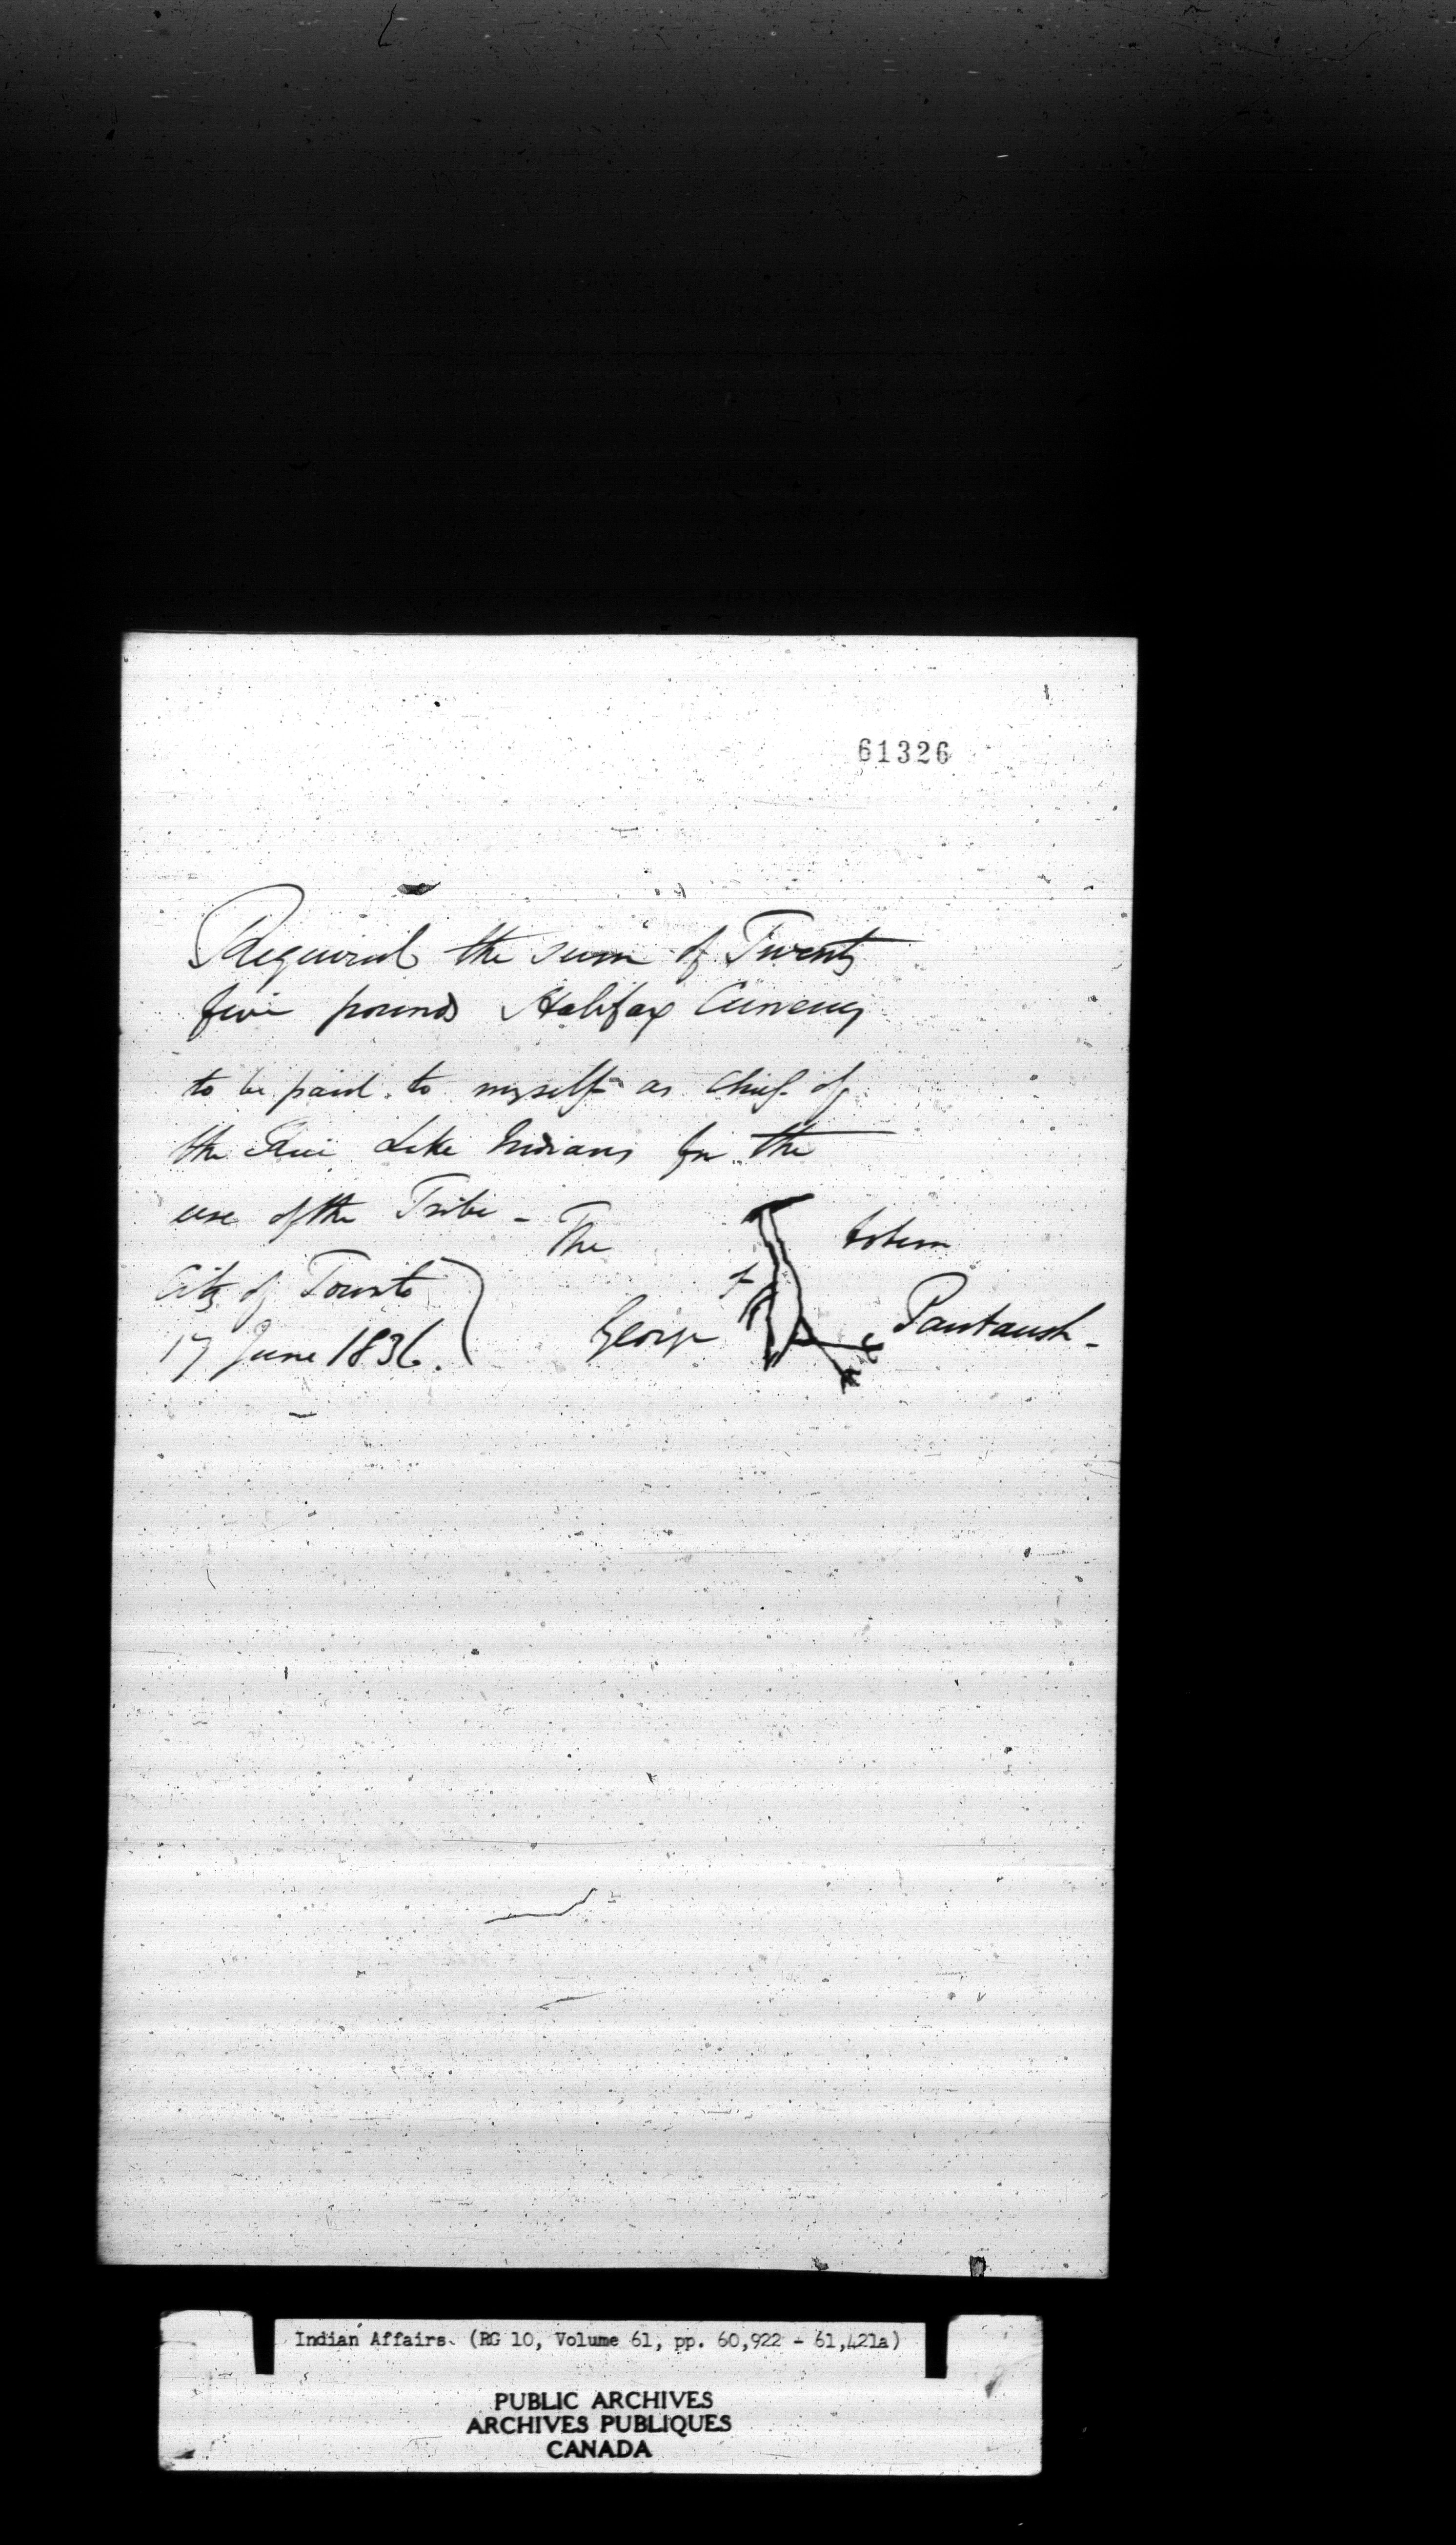 61326
Required the sum of Twenty
five pounds Halifax Currency
to be paid to myself as Chief of
the Rice Lake Indians for the
use of the Tribe - The totem
City of Toronto
17 June 1836. George Pautaush -
Indian Affairs. (RG 10, Volume 61, pp. 60,922 - 61,421a)
PUBLIC ARCHIVES
ARCHIVES PUBLIQUES
CANADA